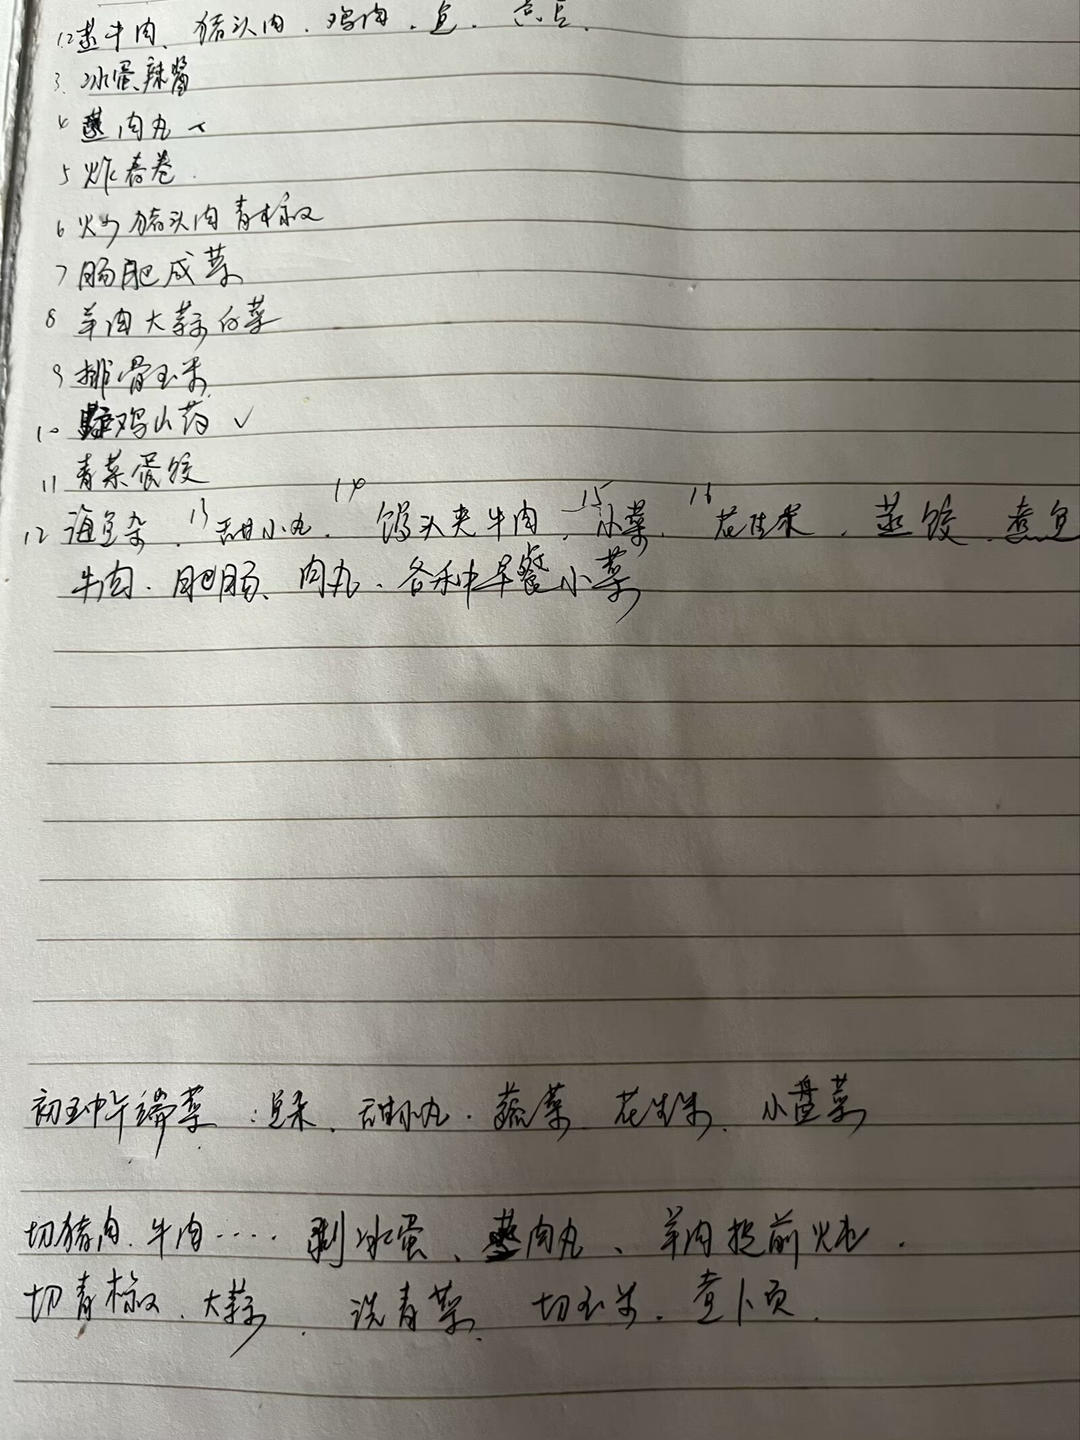 1.2 煮牛肉、猪头肉、鸡肉、鱼、
3. 冰蛋、辣酱
4 蒸肉丸
5 炸春卷
6 火少猪头肉青椒
7 肠肥咸菜
8 羊肉大蒜白菜
9 排骨玉米
10 鸡山药 ✓
11 青菜蛋饺
12 海鱼杂、13 甜小丸、14 馒头夹牛肉、15 小菜、16 花生米、蒸饺、煮鱼
牛肉、肥肠、肉丸、各种早餐小菜
初五中午 菜：鱼杂、甜小丸、蔬菜、花生米、小盘菜
切猪肉、牛肉…… 剥冰蛋、蒸肉丸、羊肉提前炖.
切青椒、大蒜、洗青菜、切玉米、